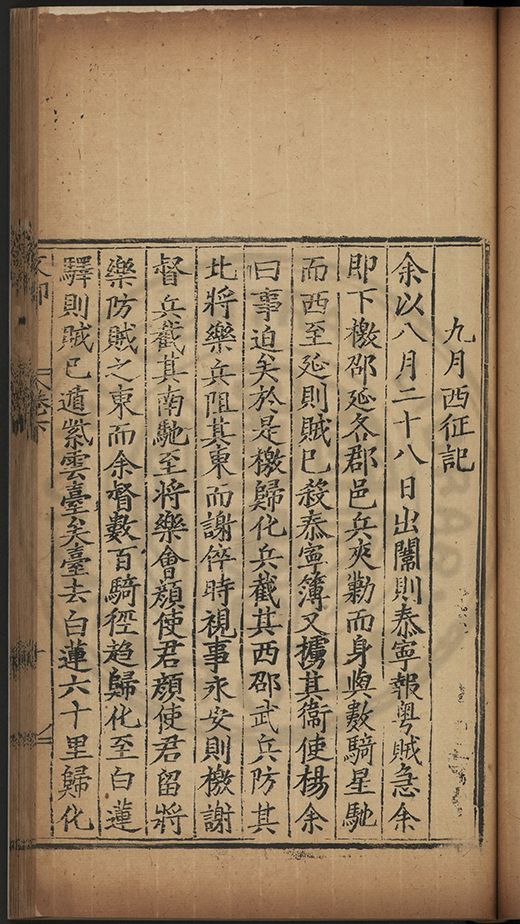 九月西征記
余以八月二十八日出闈則泰寧報粤賊急余
即下檄邵延各郡邑兵夾勦而身與數騎星馳
而西至延則賊已殺泰寧簿又擄其衞使楊余
曰事迫矣於是檄歸化兵截其西邵武兵防其
北將樂兵阻其東而謝倅時視事永安則檄謝
督兵截其南馳至將樂會顔使君顔使君留將
樂防賊之東而余督數百騎徑趋歸化至白蓮
驛則賊已遁紫雲臺矣臺去白蓮六十里歸化
卷下